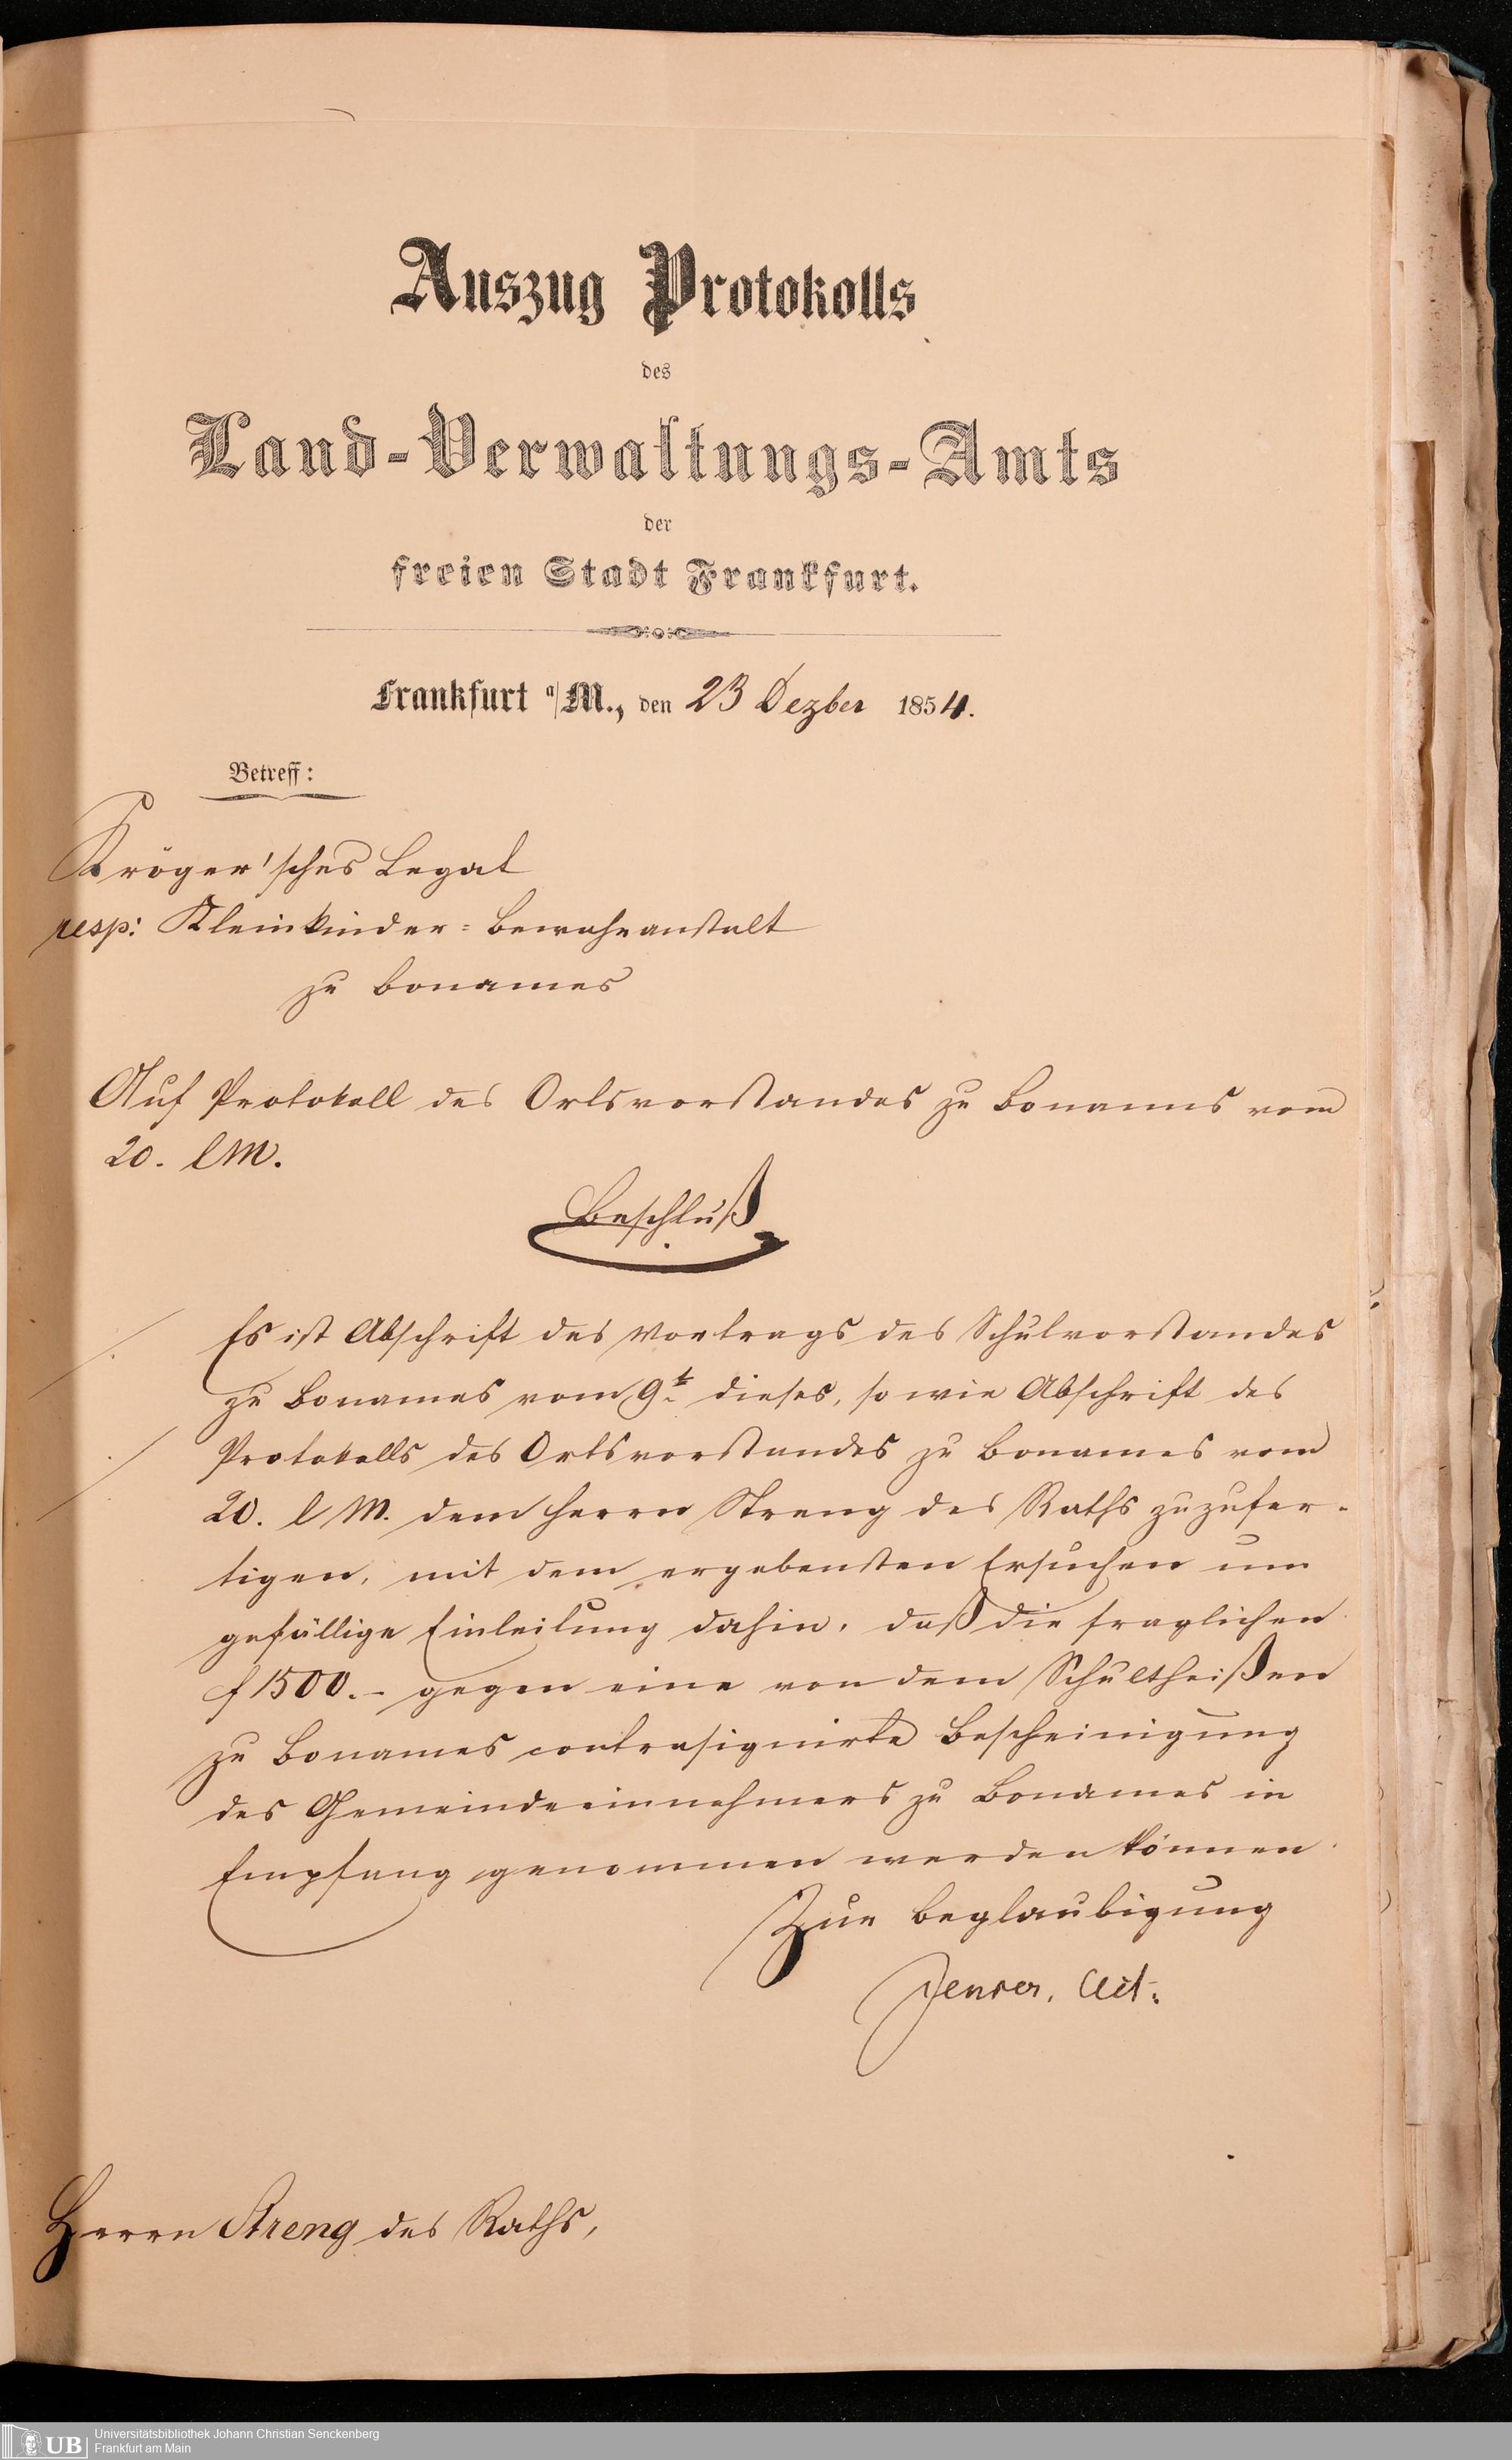 Auszug Protokolls
des
Land-Verwaltungs-Amts
der
freien Stadt Frankfurt.
Frankfurt a/M., den 23 Dezber 1854.
Betreff:
Kröger'sches Legat
resp: Kleinkinder=Bewahranstalt
zu Bonames
Auf Protokoll des Ortsvorstandes zu Bonames vom
20. l M.
Beschluß
Es ist Abschrift des Vortrags des Schulvorstandes
zu Bonames vom 9t dieses, so wie Abschrift des
Protokolls des Ortsvorstandes zu Bonames vom
20. l M. dem Herrn Streng des Raths zuzufer-
tigen, mit dem ergebensten Ersuchen um
gefällige Einleitung dahin, daß die fraglichen
f 1500.– gegen eine von dem Schultheißen
zu Bonames contrasignirte Bescheinigung
des Gemeindeeinnehmers zu Bonames in
Empfang genommen werden können.
Zur Beglaubigung
Act.
Herrn Streng des Raths,
UB
Universitätsbibliothek Johann Christian Senckenberg
Frankfurt am Main